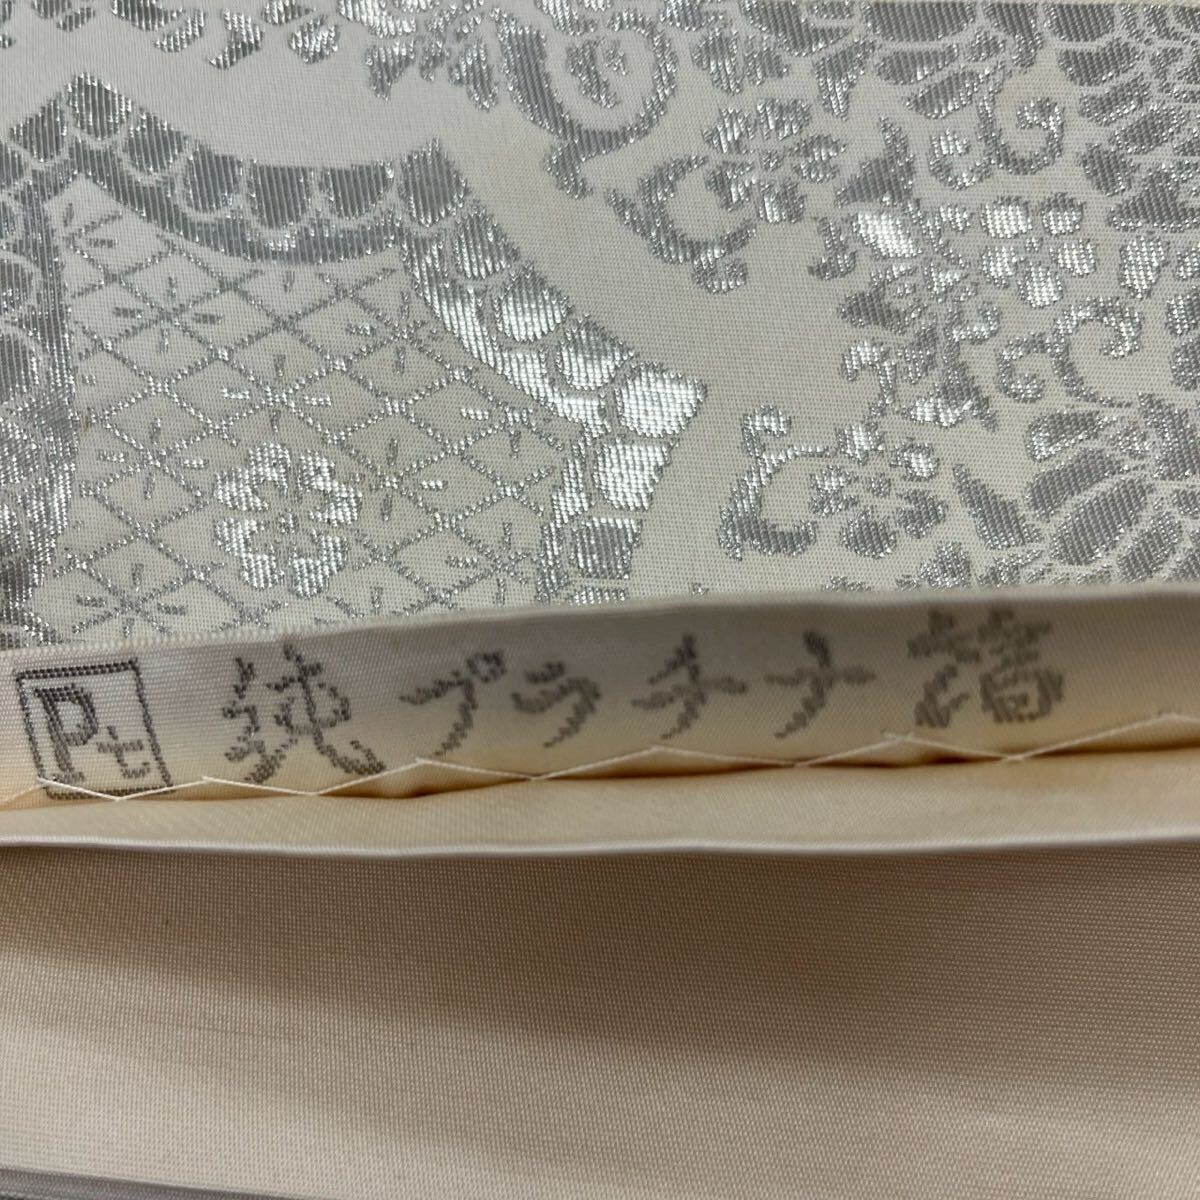 Pt 純プラチナ箔